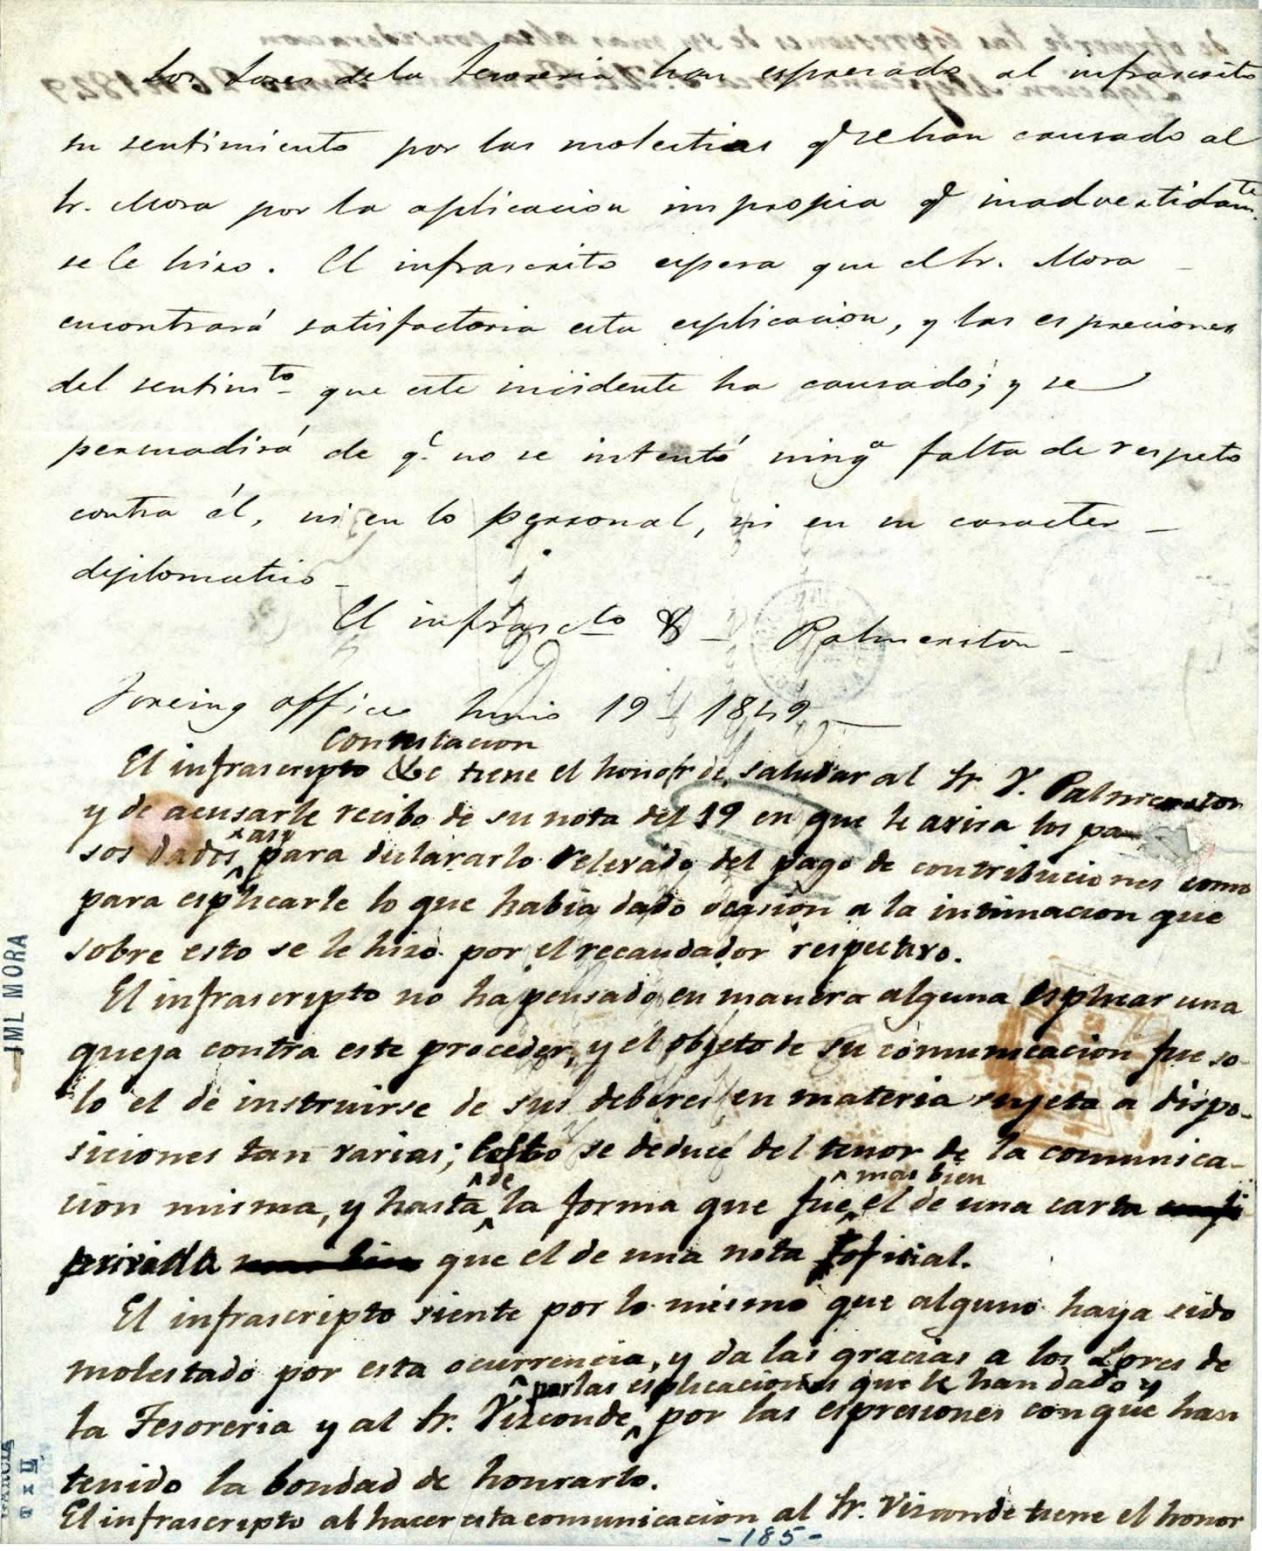 Los Lores de la tesoreria han espresado al infrascrito
su sentimiento por las molestias q se han causado al
Sr. Mora por la aplicacion impropia q inadvertidamte
se le hizo. El infrascrito espera que el Sr. Mora
encontrará satisfactoria esta esplicacion, y las espreciones
del sentimto que este incidente ha causado; y se
persuadirá de q. no se intentó ninga falta de respeto
contra él, ni en lo personal, ni en su caracter
diplomatico
El infrascto & Palmerston
Foreing office Junio 19 1849
Contestacion
El infrascripto &c tiene el honor de saludar al Sr. V. Palmerston
y de acusarle recibo de su nota del 19 en que le avisa los pa
sos dados asy para declararlo relevado del pago de contribuciones como
para esplicarle lo que habia dado ocasion a la intimacion que
sobre esto se le hizo por el recaudador respectivo.
El infrascripto no ha pensado en manera alguna esplicar una
queja contra este proceder, y el objeto de su comunicacion fue so-
lo el de instruirse de sus deberes en materia sujeta a dispo-
siciones tan varias; esto se deduce del tenor de la comunica-
cion misma, y hasta de la forma que fue mas bien el de una carta
privada que el de una nota oficial.
El infrascripto siente por lo mismo que alguno haya sido
molestado por esta ocurrencia, y da las gracias a los Lores de
la Tesoreria y al Sr. Vizconde por las esplicaciones que le han dado y por las espresiones con que han
tenido la bondad de honrarlo.
El infrascripto al hacer esta comunicacion al Sr. Visconde tiene el honor
-185-
JML MORA
GARCIA